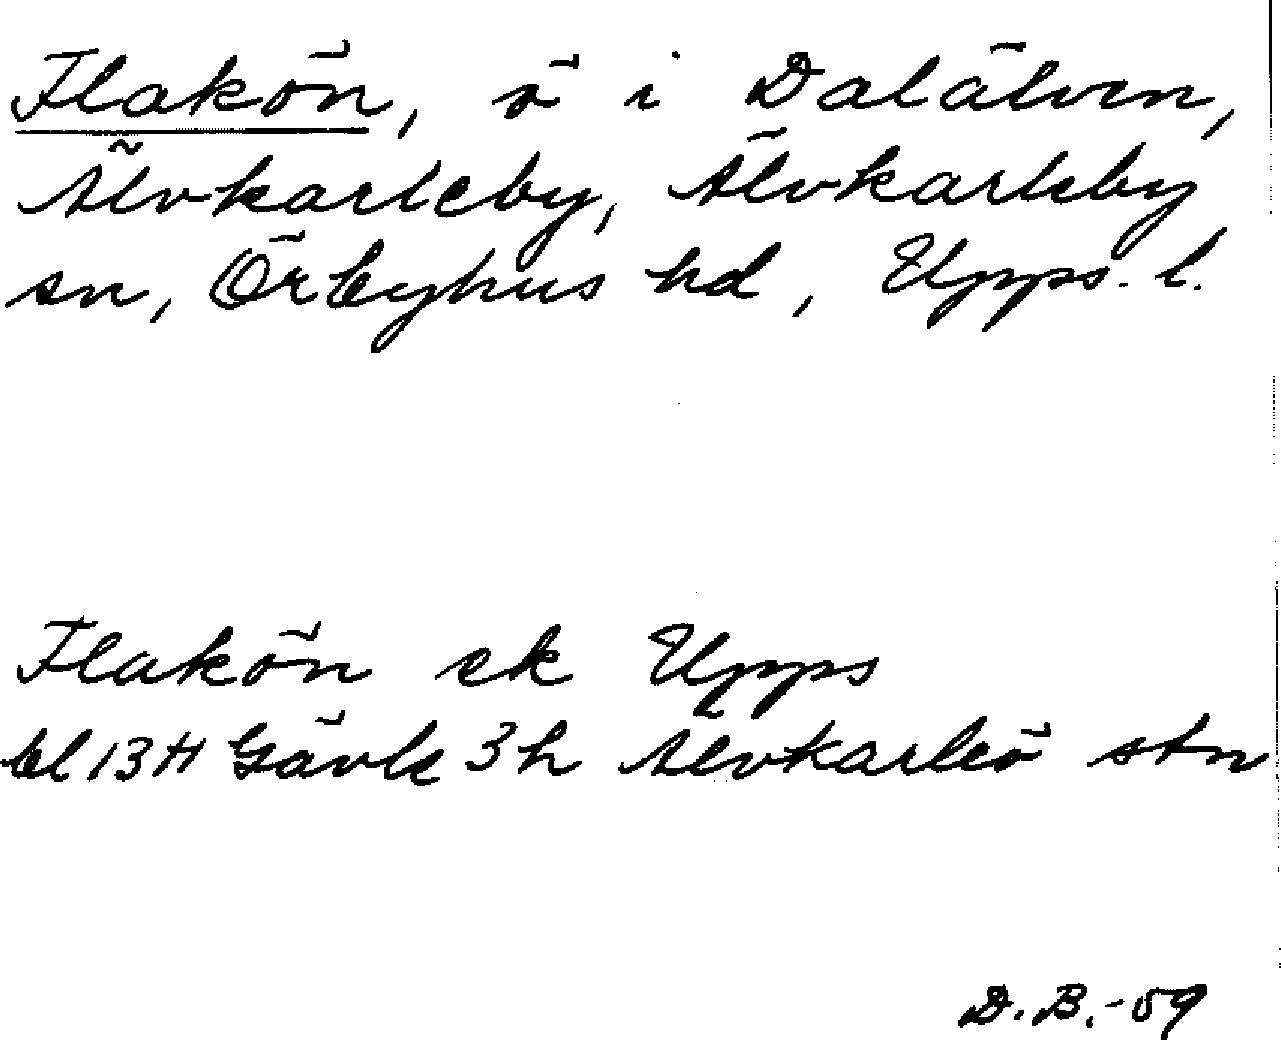 Flakön, ö i Dalälven,
Älvkarleby, Älvkarleby
sn, Örbyhus hd, Upps. l.
Flakön ek Upps
bl 13H Gävle 3h Älvkarleö stn
D.B.-59